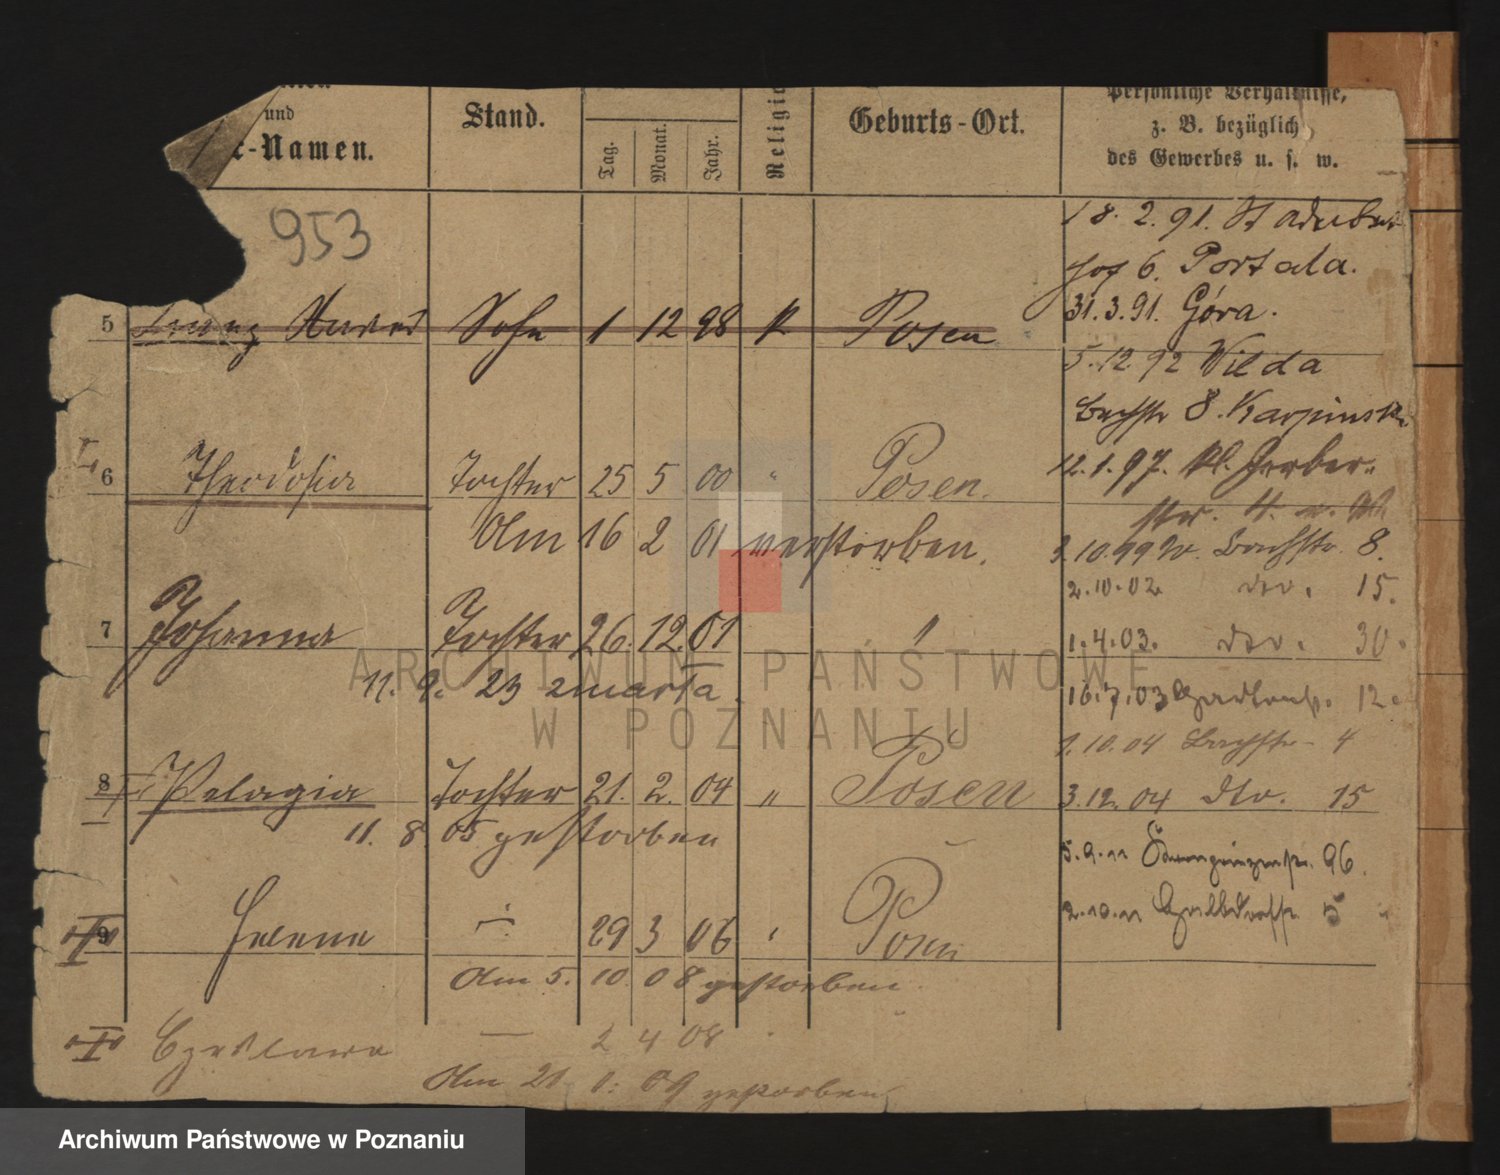 und
-Namen.
Stand.
Tag.
Monat.
Jahr.
Religio
Geburts-Ort.
Persönliche Verhältnisse,
z. B. bezüglich
des Gewerbes u. s. w.
953
18. 2. 91. St Adalbert
6. Portala.
31.3.91. Góra.
5 Sohn 1 12 98 k Posen
5.12.92 Wilda
Bachstr 8. Karpinsk
12.1.97. kl. Gerber-
6 Theodosia Tochter 25 5 00 " Posen.
str. 4.
Am 16 2 01 verstorben.
3.10.99 Bachstr. 8.
2.10.02 dto. 15.
7 Johanna Tochter 26. 12. 01 "
1.4.03. dto. 30.
11. 9. 23 zmarła.
16.7.03 12.
1.10.04 Bachstr. 4
8 Pelagia Tochter 21. 2. 04 " Posen
3.12.04 dto. 15
11. 8. 05 gestorben
5.9.11 96.
2.10.11 5
9 Helene 29 3 06 " Posen
Am 5. 10. 08 gestorben.
Czeslawa — 2 4 08
Am 21 1. 09 gestorben
ARCHIWUM PAŃSTWOWE
W POZNANIU
Archiwum Państwowe w Poznaniu